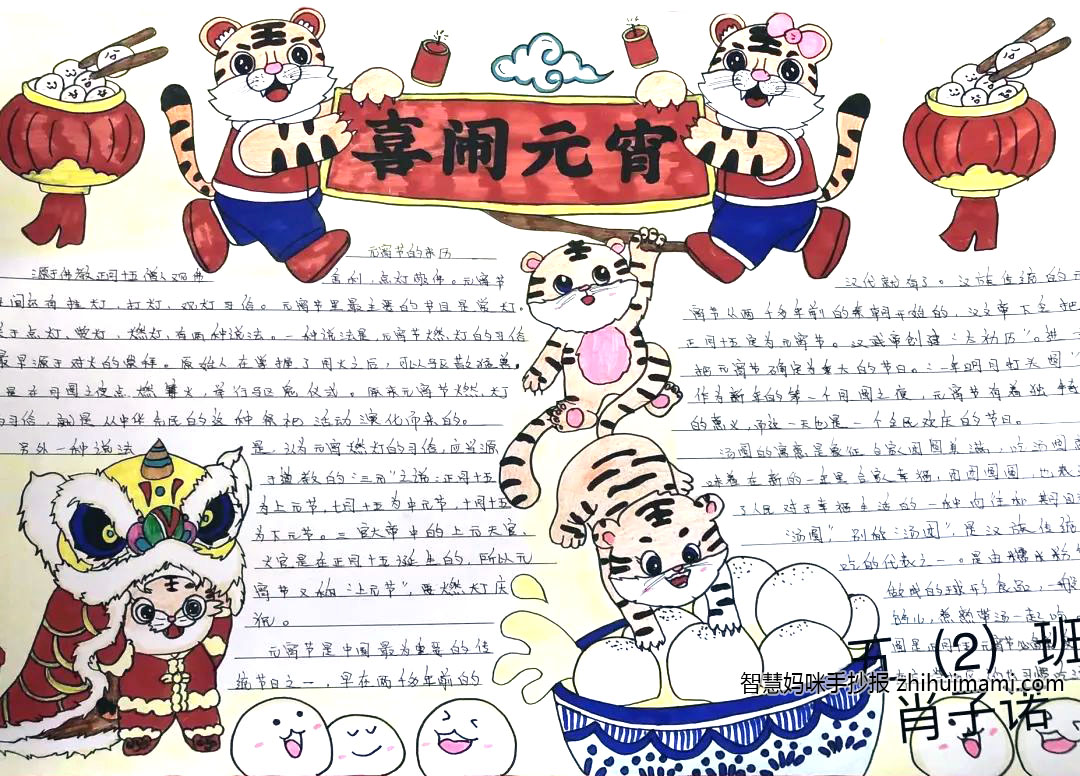 喜闹元宵
元宵节的来历
源于佛教正月十五僧人观佛
舍利，点灯敬佛。元宵节
民间还有挂灯，打灯，观灯习俗。元宵节里最主要的节目是赏灯。
关于点灯，赏灯，燃灯，有两种说法。一种说法是，元宵节燃灯的习俗
最早源于对火的崇拜。原始人在掌握了用火之后，可以驱散猛兽。
是在月圆之夜点燃篝火，举行驱魔仪式。原来元宵节燃灯
的习俗，就是从中华先民的这种祭祀活动演化而来的。
另外一种说法
是，认为元宵燃灯的习俗，应当源
于道教的“三元”之说：正月十五
为上元节，七月十五为中元节，十月十五
为下元节。三官大帝中的上元天官
火官是在正月十五诞生的，所以元
宵节又称“上元节”，要燃灯庆
祝。
元宵节是中国最为重要的传
统节日之一，早在两千多年前的
汉代就有了。汉族传统的元
宵节从两千多年前的秦朝开始的，汉文帝下令把
正月十五定为元宵节。汉武帝创建“太初历”，进
把元宵节确定为重大的节日。一年明月打头圆
作为新年的第一个月圆之夜，元宵节有着独特
的意义，而这一天也是一个全民欢庆的节日。
汤圆的寓意是象征合家团圆美满，吃汤圆意
味着在新的一年里合家幸福，团团圆圆，也表
了人民对于幸福生活的一种向往和期
汤圆”别称“汤团”，是汉族传统
吃的代表之一。是由糯米粉
做成的球形食品，一般
馅心，煮熟带汤一起吃
圆是正月十五元宵节
五（2）班
肖子诺
智慧妈咪手抄报 zhihuimami.com